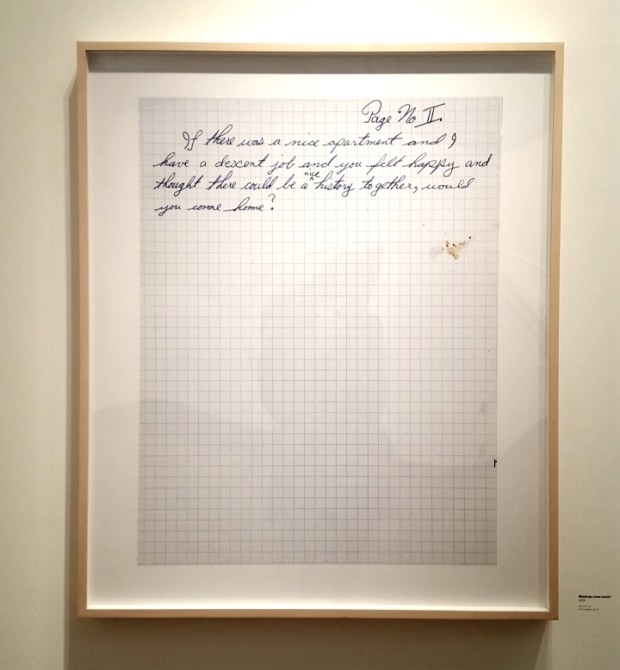 Page No II.
If there was a nice apartment and I
have a descent job and you felt happy and
thought there could be a nice history together, would
you come home?